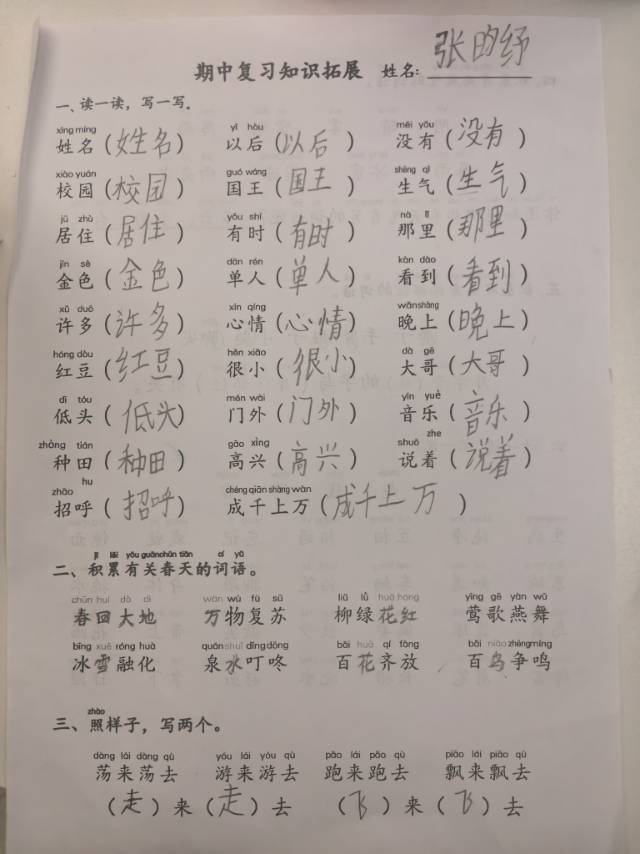 期中复习知识拓展 姓名: 张昀纾
一、读一读，写一写。
xìng míng yǐ hòu méi yǒu
姓名（姓名） 以后（以后） 没有（没有）
xiào yuán guó wáng shēng qì
校园（校园） 国王（国王） 生气（生气）
jū zhù yǒu shí nà lǐ
居住（居住） 有时（有时） 那里（那里）
jīn sè dān rén kàn dào
金色（金色） 单人（单人） 看到（看到）
xǔ duō xīn qíng wǎnshàng
许多（许多） 心情（心情） 晚上（晚上）
hóng dòu hěn xiǎo dà gē
红豆（红豆） 很小（很小） 大哥（大哥）
dī tóu mén wài yīn yuè
低头（低头） 门外（门外） 音乐（音乐）
zhòng tián gāo xìng shuō zhe
种田（种田） 高兴（高兴） 说着（说着）
zhāo hu chéng qiān shàng wàn
招呼（招呼） 成千上万（成千上万）
jī lěi yǒu guān chūn tiān cí yǔ
二、积累有关春天的词语。
chūn huí dà dì wàn wù fù sū liǔ lǜ huā hóng yīng gē yàn wǔ
春回大地 万物复苏 柳绿花红 莺歌燕舞
bīng xuě róng huà quán shuǐ dīng dōng bǎi huā qí fàng bǎi niǎo zhēng míng
冰雪融化 泉水叮咚 百花齐放 百鸟争鸣
zhào
三、照样子，写两个。
dàng lái dàng qù yóu lái yóu qù pǎo lái pǎo qù piāo lái piāo qù
荡来荡去 游来游去 跑来跑去 飘来飘去
（走）来（走）去 （飞）来（飞）去